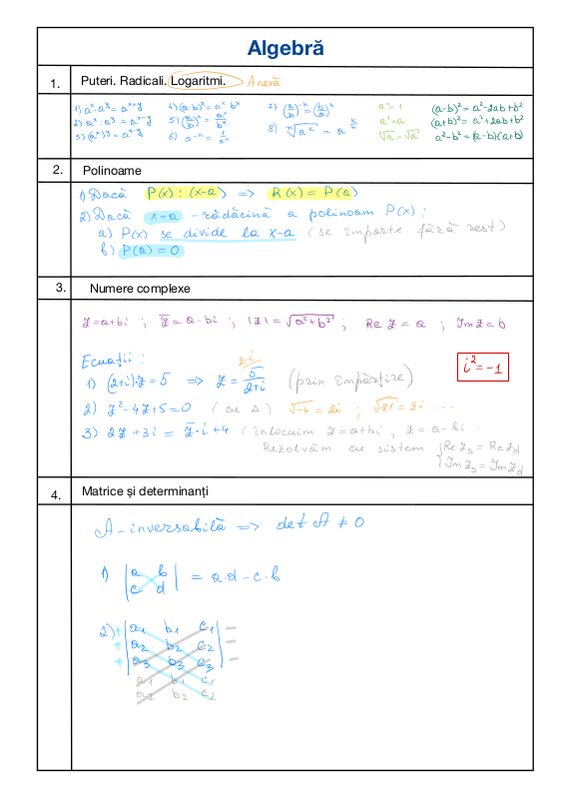 Algebră
1. Puteri. Radicali. Logaritmi. Anexă
1) aˣ·aʸ = aˣ⁺ʸ 4) (a·b)ˣ = aˣ bˣ
a²-b² = (a-b)(a+b)
(a-b)² = a²-2ab+b²
(a+b)² = a²+2ab+b²
2. Polinoame
1) Dacă P(x) : (x-a) => R(x) = P(a)
2) Dacă x=a - rădăcină a polinoam P(x) :
a) P(x) se divide la x-a (se împarte fără rest)
b) P(a) = 0
3. Numere complexe
z = a+bi ; z̅ = a-bi ; |z| = √(a²+b²) ; Re z = a ; Im z = b
Ecuații :
2-i
i² = -1
1) (2+i)·z = 5 => z = 5/(2+i) (prin împărțire)
2) z²-4z+5=0 (cu Δ) √-4 = 2i ;
3) 2z+3i = z̅·i+4 (înlocuim z=a+bi , z̅ = a-bi
Rezolvăm cu sistem { Re zₛ = Re z_d
Im zₛ = Im z_d
4. Matrice și determinanți
A - inversabilă => det A ≠ 0
1) |a b|
|c d| = a·d - c·b
2) + |a₁ b₁ c₁| -
+ |a₂ b₂ c₂| -
+ |a₃ b₃ c₃| -
a₁ b₁ c₁
a₂ b₂ c₂